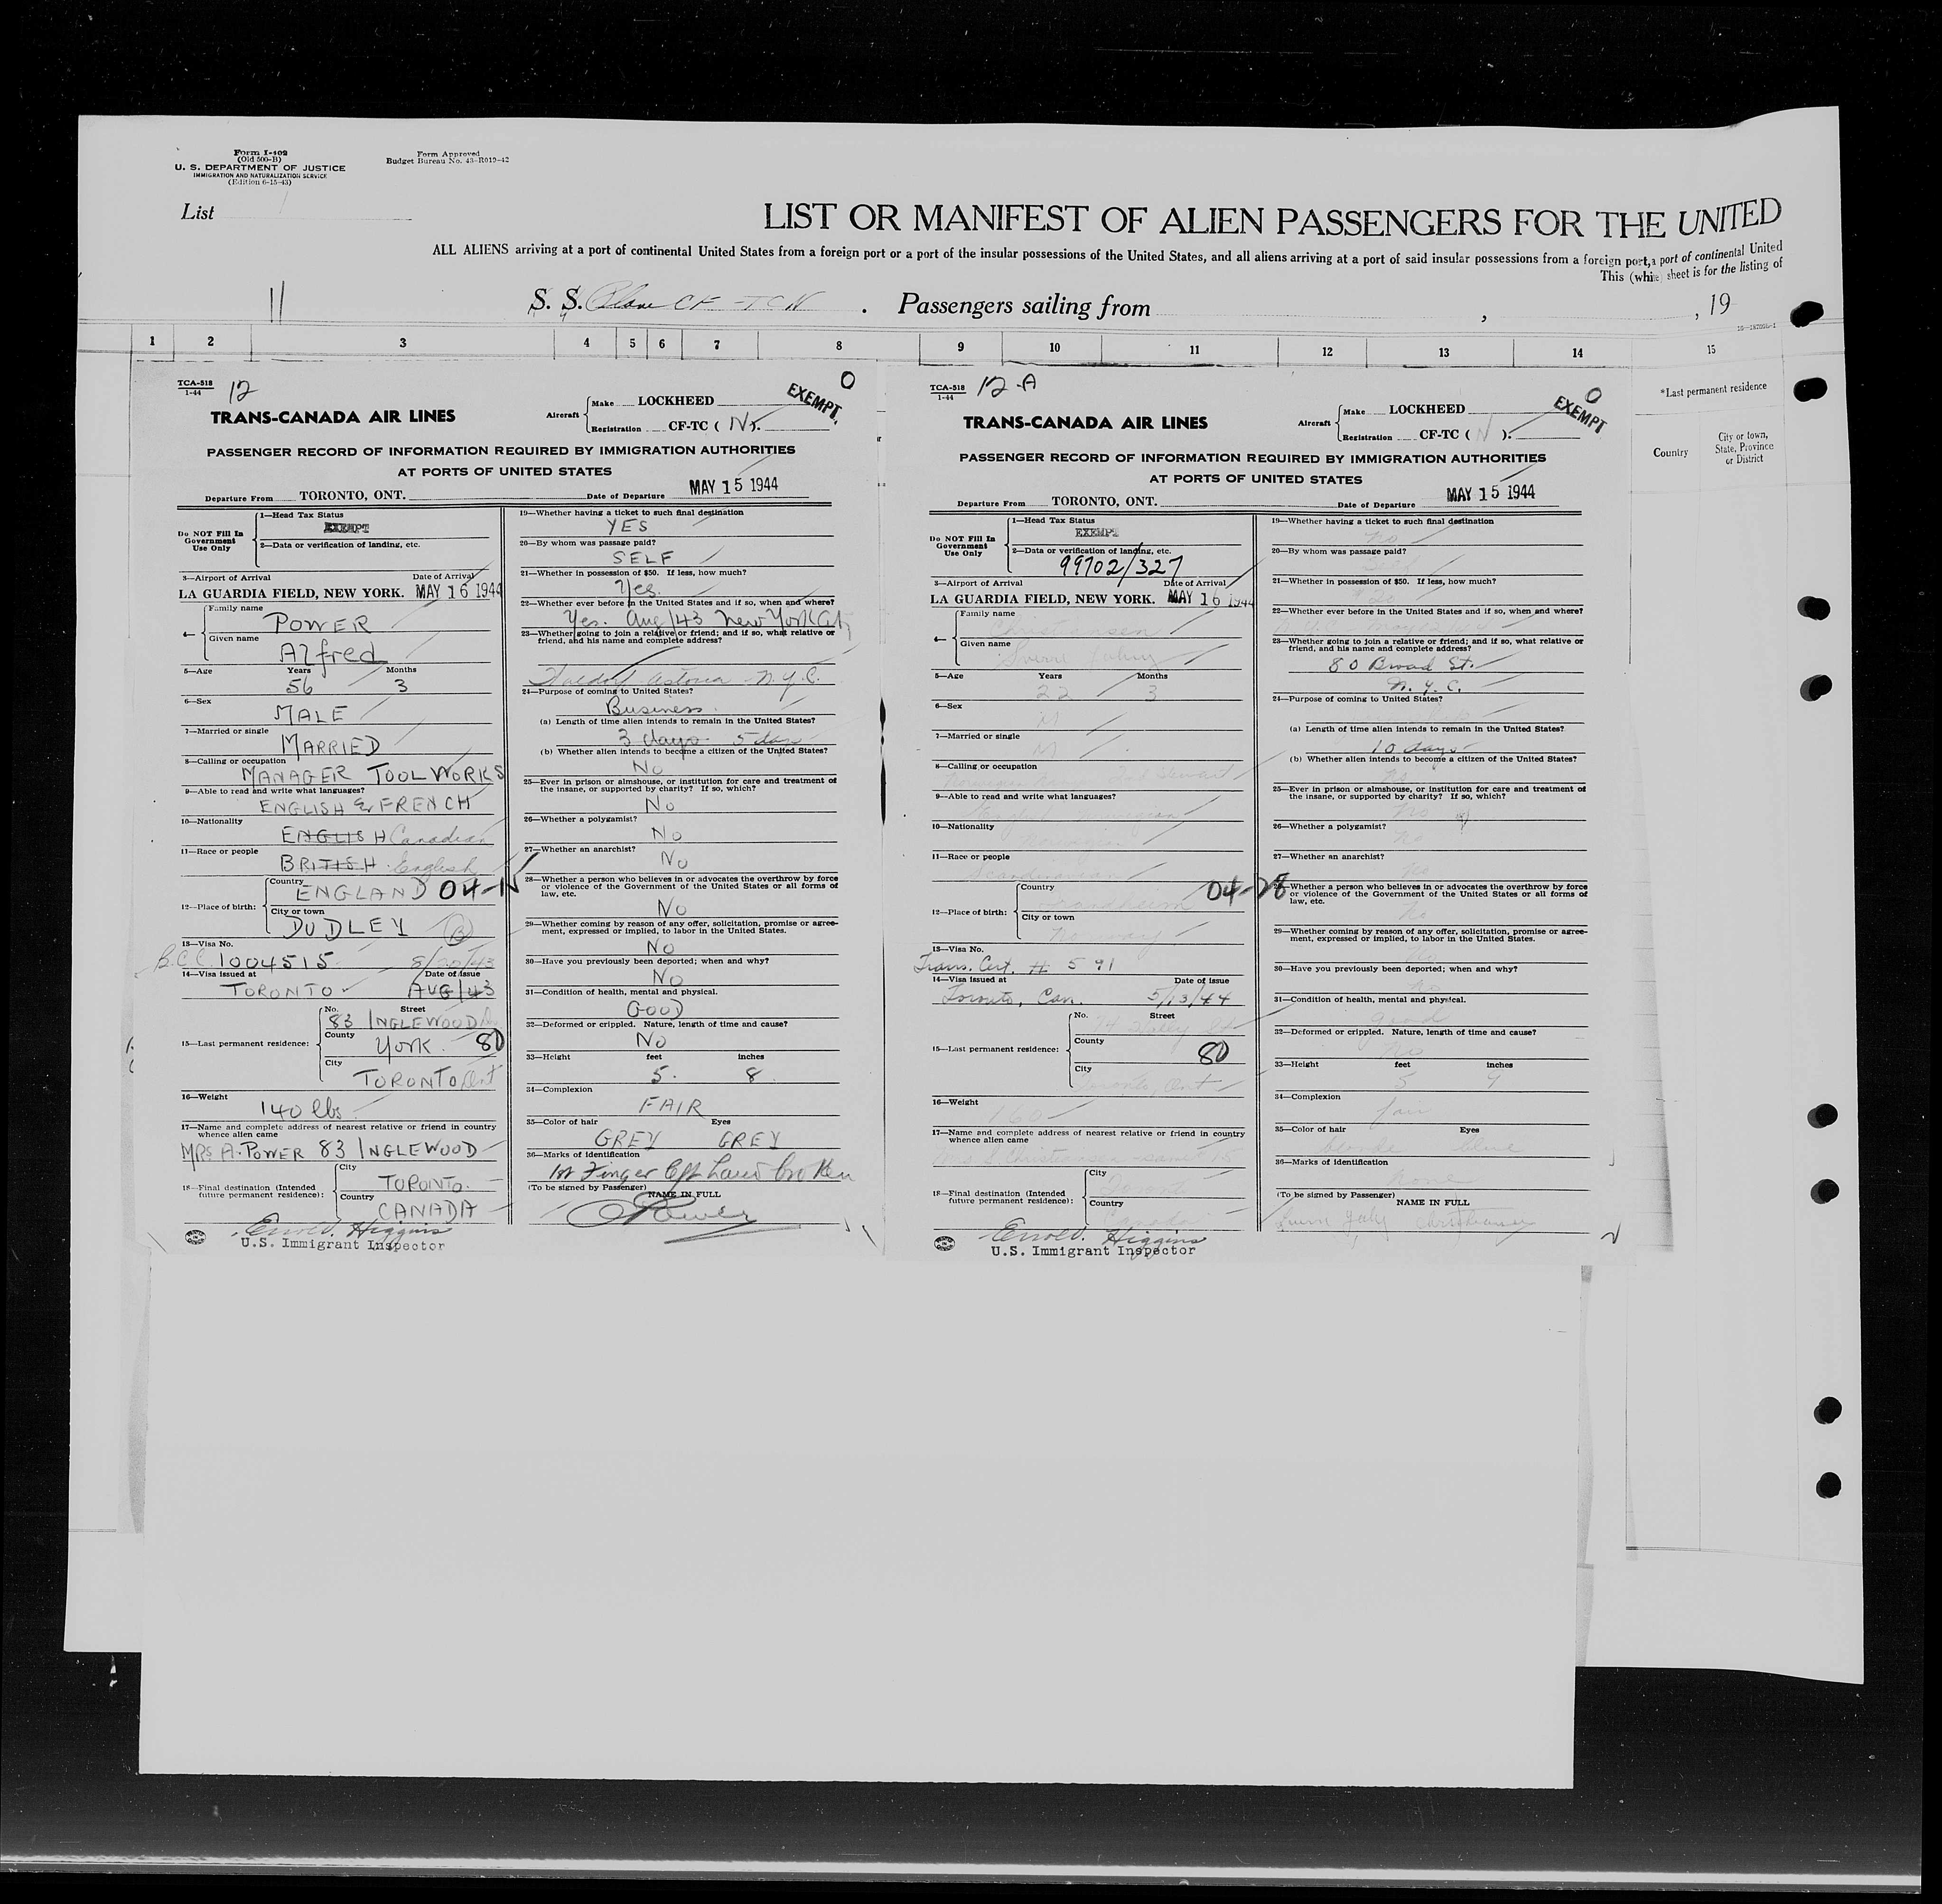 Form I-402
(Old 500-B)
U. S. DEPARTMENT OF JUSTICE
IMMIGRATION AND NATURALIZATION SERVICE
(Edition 6-15-43)
Form Approved
Budget Bureau No. 43-R019-42
List
LIST OR MANIFEST OF ALIEN PASSENGERS FOR THE UNITED
ALL ALIENS arriving at a port of continental United States from a foreign port or a port of the insular possessions of the United States, and all aliens arriving at a port of said insular possessions from a foreign port, a port of continental United
This (white) sheet is for the listing of
11
S. S. Plane CF-TCN . Passengers sailing from , , 19
1 2 3 4 5 6 7 8 9 10 11 12 13 14 15
*Last permanent residence
Country
City or town, State, Province or District
TCA-518
1-44
12
TRANS-CANADA AIR LINES
Aircraft
Make LOCKHEED
Registration CF-TC ( N ).
EXEMPT.
0
PASSENGER RECORD OF INFORMATION REQUIRED BY IMMIGRATION AUTHORITIES
AT PORTS OF UNITED STATES
Departure From TORONTO, ONT. Date of Departure MAY 15 1944
Do NOT Fill In Government Use Only
1—Head Tax Status
EXEMPT
2—Data or verification of landing, etc.
3—Airport of Arrival Date of Arrival
LA GUARDIA FIELD, NEW YORK. MAY 16 1944
4—
Family name
POWER
Given name
Alfred
5—Age Years Months
56 3
6—Sex
MALE
7—Married or single
MARRIED
8—Calling or occupation
MANAGER TOOL WORKS
9—Able to read and write what languages?
ENGLISH & FRENCH
10—Nationality
ENGLISH Canadian
11—Race or people
BRITISH English
12—Place of birth:
Country
ENGLAND 04-15
City or town
DUDLEY B
13—Visa No.
B.C.C. 1004515 8/20/43
14—Visa issued at Date of issue
TORONTO AUG/43
15—Last permanent residence:
No. Street
83 INGLEWOOD Dr
County
YORK 80
City
TORONTO Ont
16—Weight
140 lbs
17—Name and complete address of nearest relative or friend in country whence alien came
MRS A. POWER 83 INGLEWOOD
18—Final destination (Intended future permanent residence):
City
TORONTO.
Country
CANADA
Errol V. Higgins
U.S. Immigrant Inspector
19—Whether having a ticket to such final destination
YES
20—By whom was passage paid?
SELF
21—Whether in possession of $50. If less, how much?
Yes.
22—Whether ever before in the United States and if so, when and where?
Yes. Aug/43 New York City
23—Whether going to join a relative or friend; and if so, what relative or friend, and his name and complete address?
Waldorf Astoria - N.Y.C.
24—Purpose of coming to United States?
Business.
(a) Length of time alien intends to remain in the United States?
3 days. 5 days
(b) Whether alien intends to become a citizen of the United States?
No
25—Ever in prison or almshouse, or institution for care and treatment of the insane, or supported by charity? If so, which?
No
26—Whether a polygamist?
No
27—Whether an anarchist?
No
28—Whether a person who believes in or advocates the overthrow by force or violence of the Government of the United States or all forms of law, etc.
No
29—Whether coming by reason of any offer, solicitation, promise or agreement, expressed or implied, to labor in the United States.
No
30—Have you previously been deported; when and why?
No
31—Condition of health, mental and physical.
GOOD
32—Deformed or crippled. Nature, length of time and cause?
No
33—Height feet inches
5. 8.
34—Complexion
FAIR
35—Color of hair Eyes
GREY GREY
36—Marks of identification
1st Finger left hand broken
(To be signed by Passenger) NAME IN FULL
A Power
TCA-518
1-44
12-A
TRANS-CANADA AIR LINES
Aircraft
Make LOCKHEED
Registration CF-TC ( N ).
EXEMPT
0
PASSENGER RECORD OF INFORMATION REQUIRED BY IMMIGRATION AUTHORITIES
AT PORTS OF UNITED STATES
Departure From TORONTO, ONT. Date of Departure MAY 15 1944
Do NOT Fill In Government Use Only
1—Head Tax Status
EXEMPT
2—Data or verification of landing, etc.
99702/327
3—Airport of Arrival Date of Arrival
LA GUARDIA FIELD, NEW YORK. MAY 16 1944
4—
Family name
Given name
5—Age Years Months
22 3
6—Sex
M
7—Married or single
M
8—Calling or occupation
9—Able to read and write what languages?
10—Nationality
Norwegian
11—Race or people
Scandinavian
12—Place of birth:
Country
Trondheim 04-28
City or town
Norway
13—Visa No.
Trans. Cert. # 591
14—Visa issued at Date of issue
Toronto, Can. 5/13/44
15—Last permanent residence:
No. Street
County
80
City
Toronto, Ont
16—Weight
160
17—Name and complete address of nearest relative or friend in country whence alien came
Mrs S. Christiansen same 15
18—Final destination (Intended future permanent residence):
City
Toronto
Country
Canada
Errol V. Higgins
U.S. Immigrant Inspector
19—Whether having a ticket to such final destination
no
20—By whom was passage paid?
Self
21—Whether in possession of $50. If less, how much?
22—Whether ever before in the United States and if so, when and where?
23—Whether going to join a relative or friend; and if so, what relative or friend, and his name and complete address?
80 Broad St.
N.Y.C.
24—Purpose of coming to United States?
(a) Length of time alien intends to remain in the United States?
10 days
(b) Whether alien intends to become a citizen of the United States?
no
25—Ever in prison or almshouse, or institution for care and treatment of the insane, or supported by charity? If so, which?
No
26—Whether a polygamist?
No
27—Whether an anarchist?
No
28—Whether a person who believes in or advocates the overthrow by force or violence of the Government of the United States or all forms of law, etc.
No
29—Whether coming by reason of any offer, solicitation, promise or agreement, expressed or implied, to labor in the United States.
No
30—Have you previously been deported; when and why?
No
31—Condition of health, mental and physical.
good
32—Deformed or crippled. Nature, length of time and cause?
no
33—Height feet inches
5 9
34—Complexion
fair
35—Color of hair Eyes
blonde blue
36—Marks of identification
none
(To be signed by Passenger) NAME IN FULL